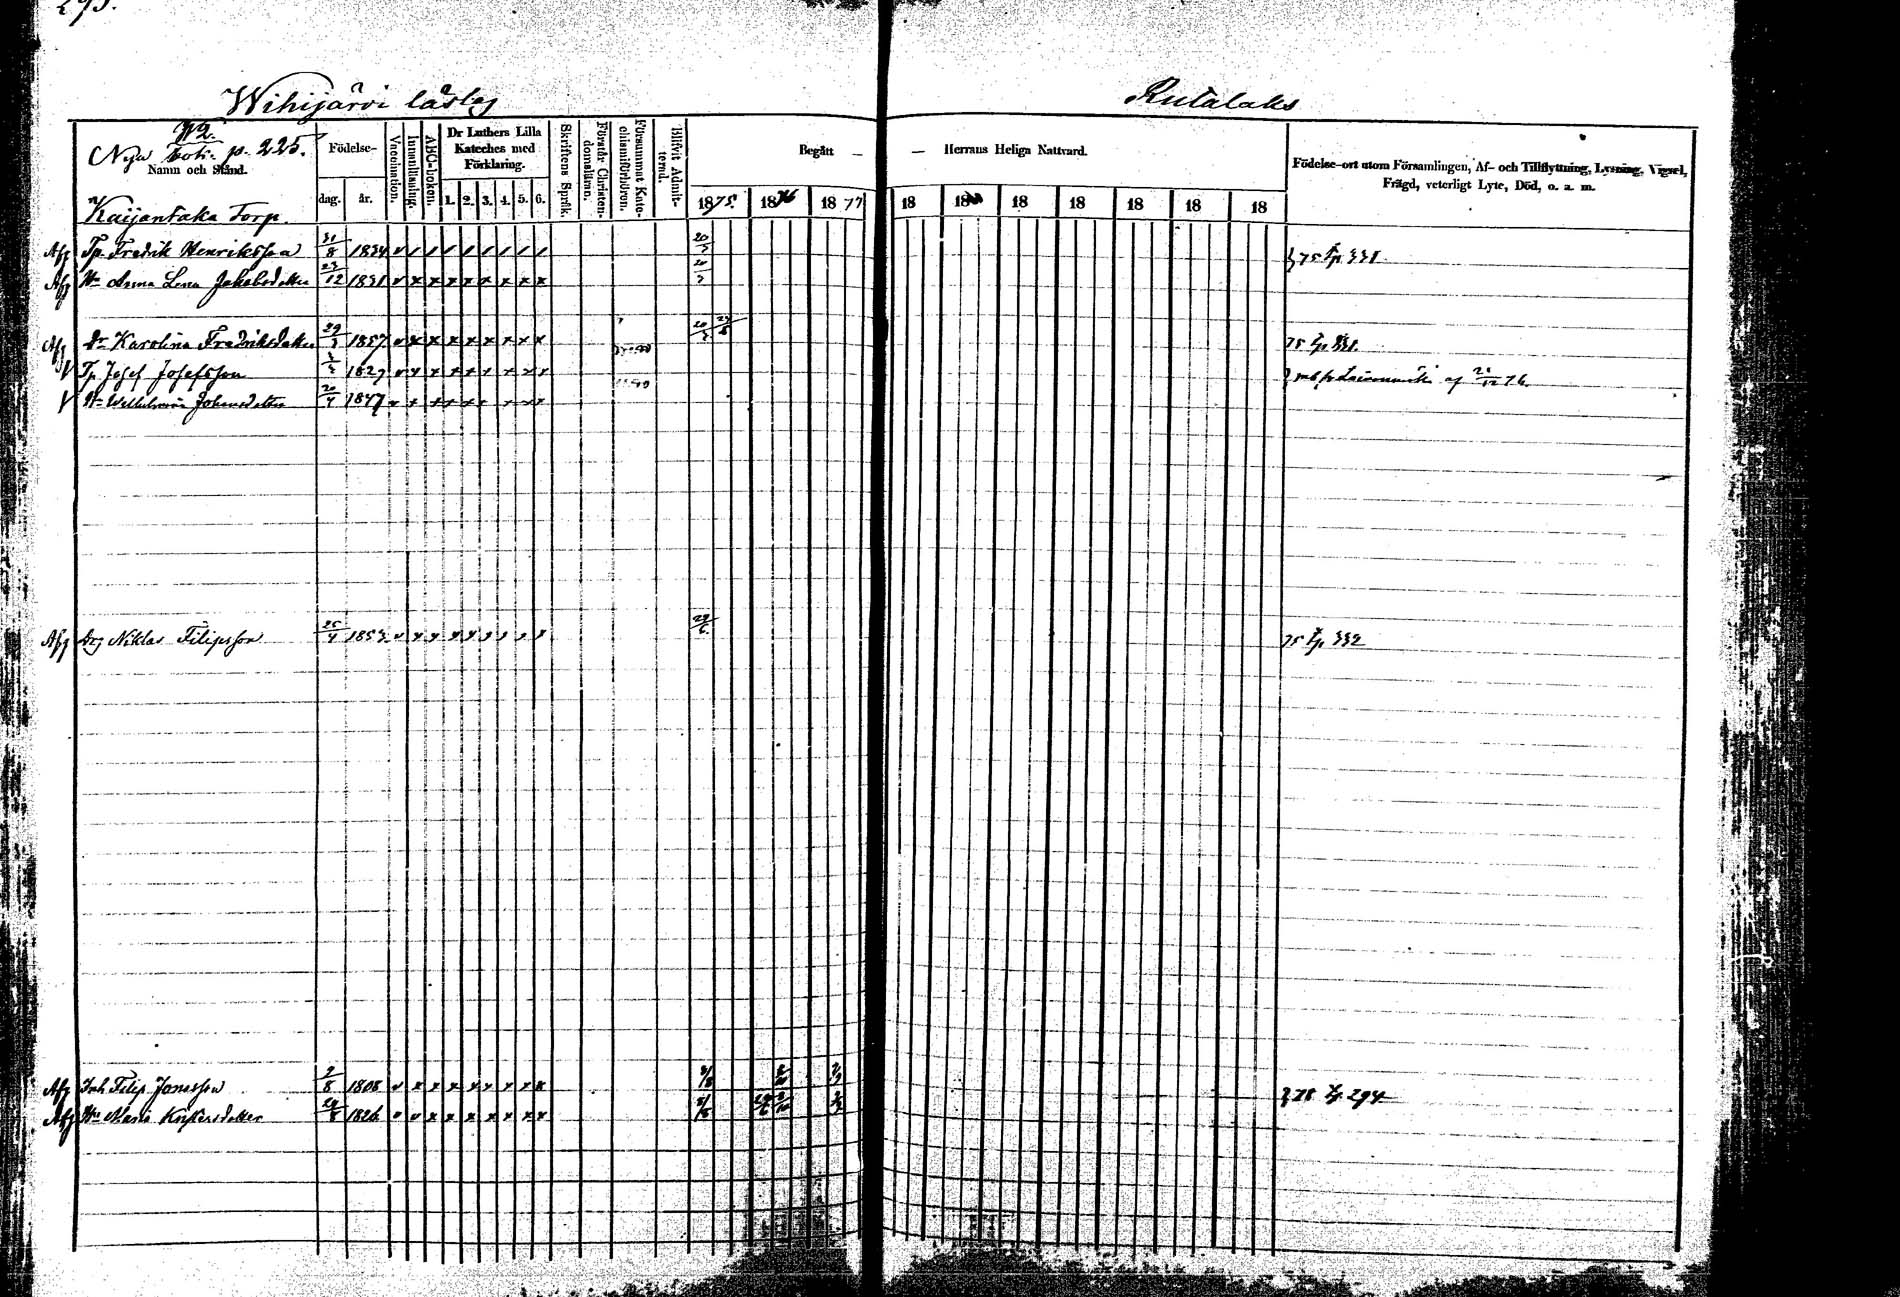 293.
Wihijärvi läslag Rutalaks
N2.
Nya bok. p. 225.
Namn och Stånd.
Födelse-
dag. år.
Vaccination.
Innanläsning.
ABC-boken.
Dr Luthers Lilla Kateches med Förklaring.
1. 2. 3. 4. 5. 6.
Skriftens Språk.
Förstår Christendomslära.
Försummat Katechismiförhören.
Blifvit Admitterad.
Begått — — Herrans Heliga Nattvard.
1875. 1876 1877 18 18 18 18 18 18 18
Födelse-ort utom Församlingen, Af- och Tillflyttning, Lysning, Vigsel, Frägd, veterligt Lyte, Död, o. a. m.
Kaijantaka Torp.
Afg Tp. Fredrik Henriksson 31/8 1834 20/3 75 Lp 331.
Afg Hu Anna Lena Jakobsdotter 24/12 1831 20/3
Afg Dr Karolina Fredriksdotter 29/3 1857. 75 Lp 331.
Tp Josef Josefsson 1829 76.
Hu Wilhelmina Johansdotter 20/4 1847
Afg Drg Niklas Filipsson 25/4 1853 29/6. 75 Lp. 332
Afg Inh Filip Jonasson 2/8 1808 78 Lp. 294
Afg Hu Maria Kristersdotter 24/8 1826.